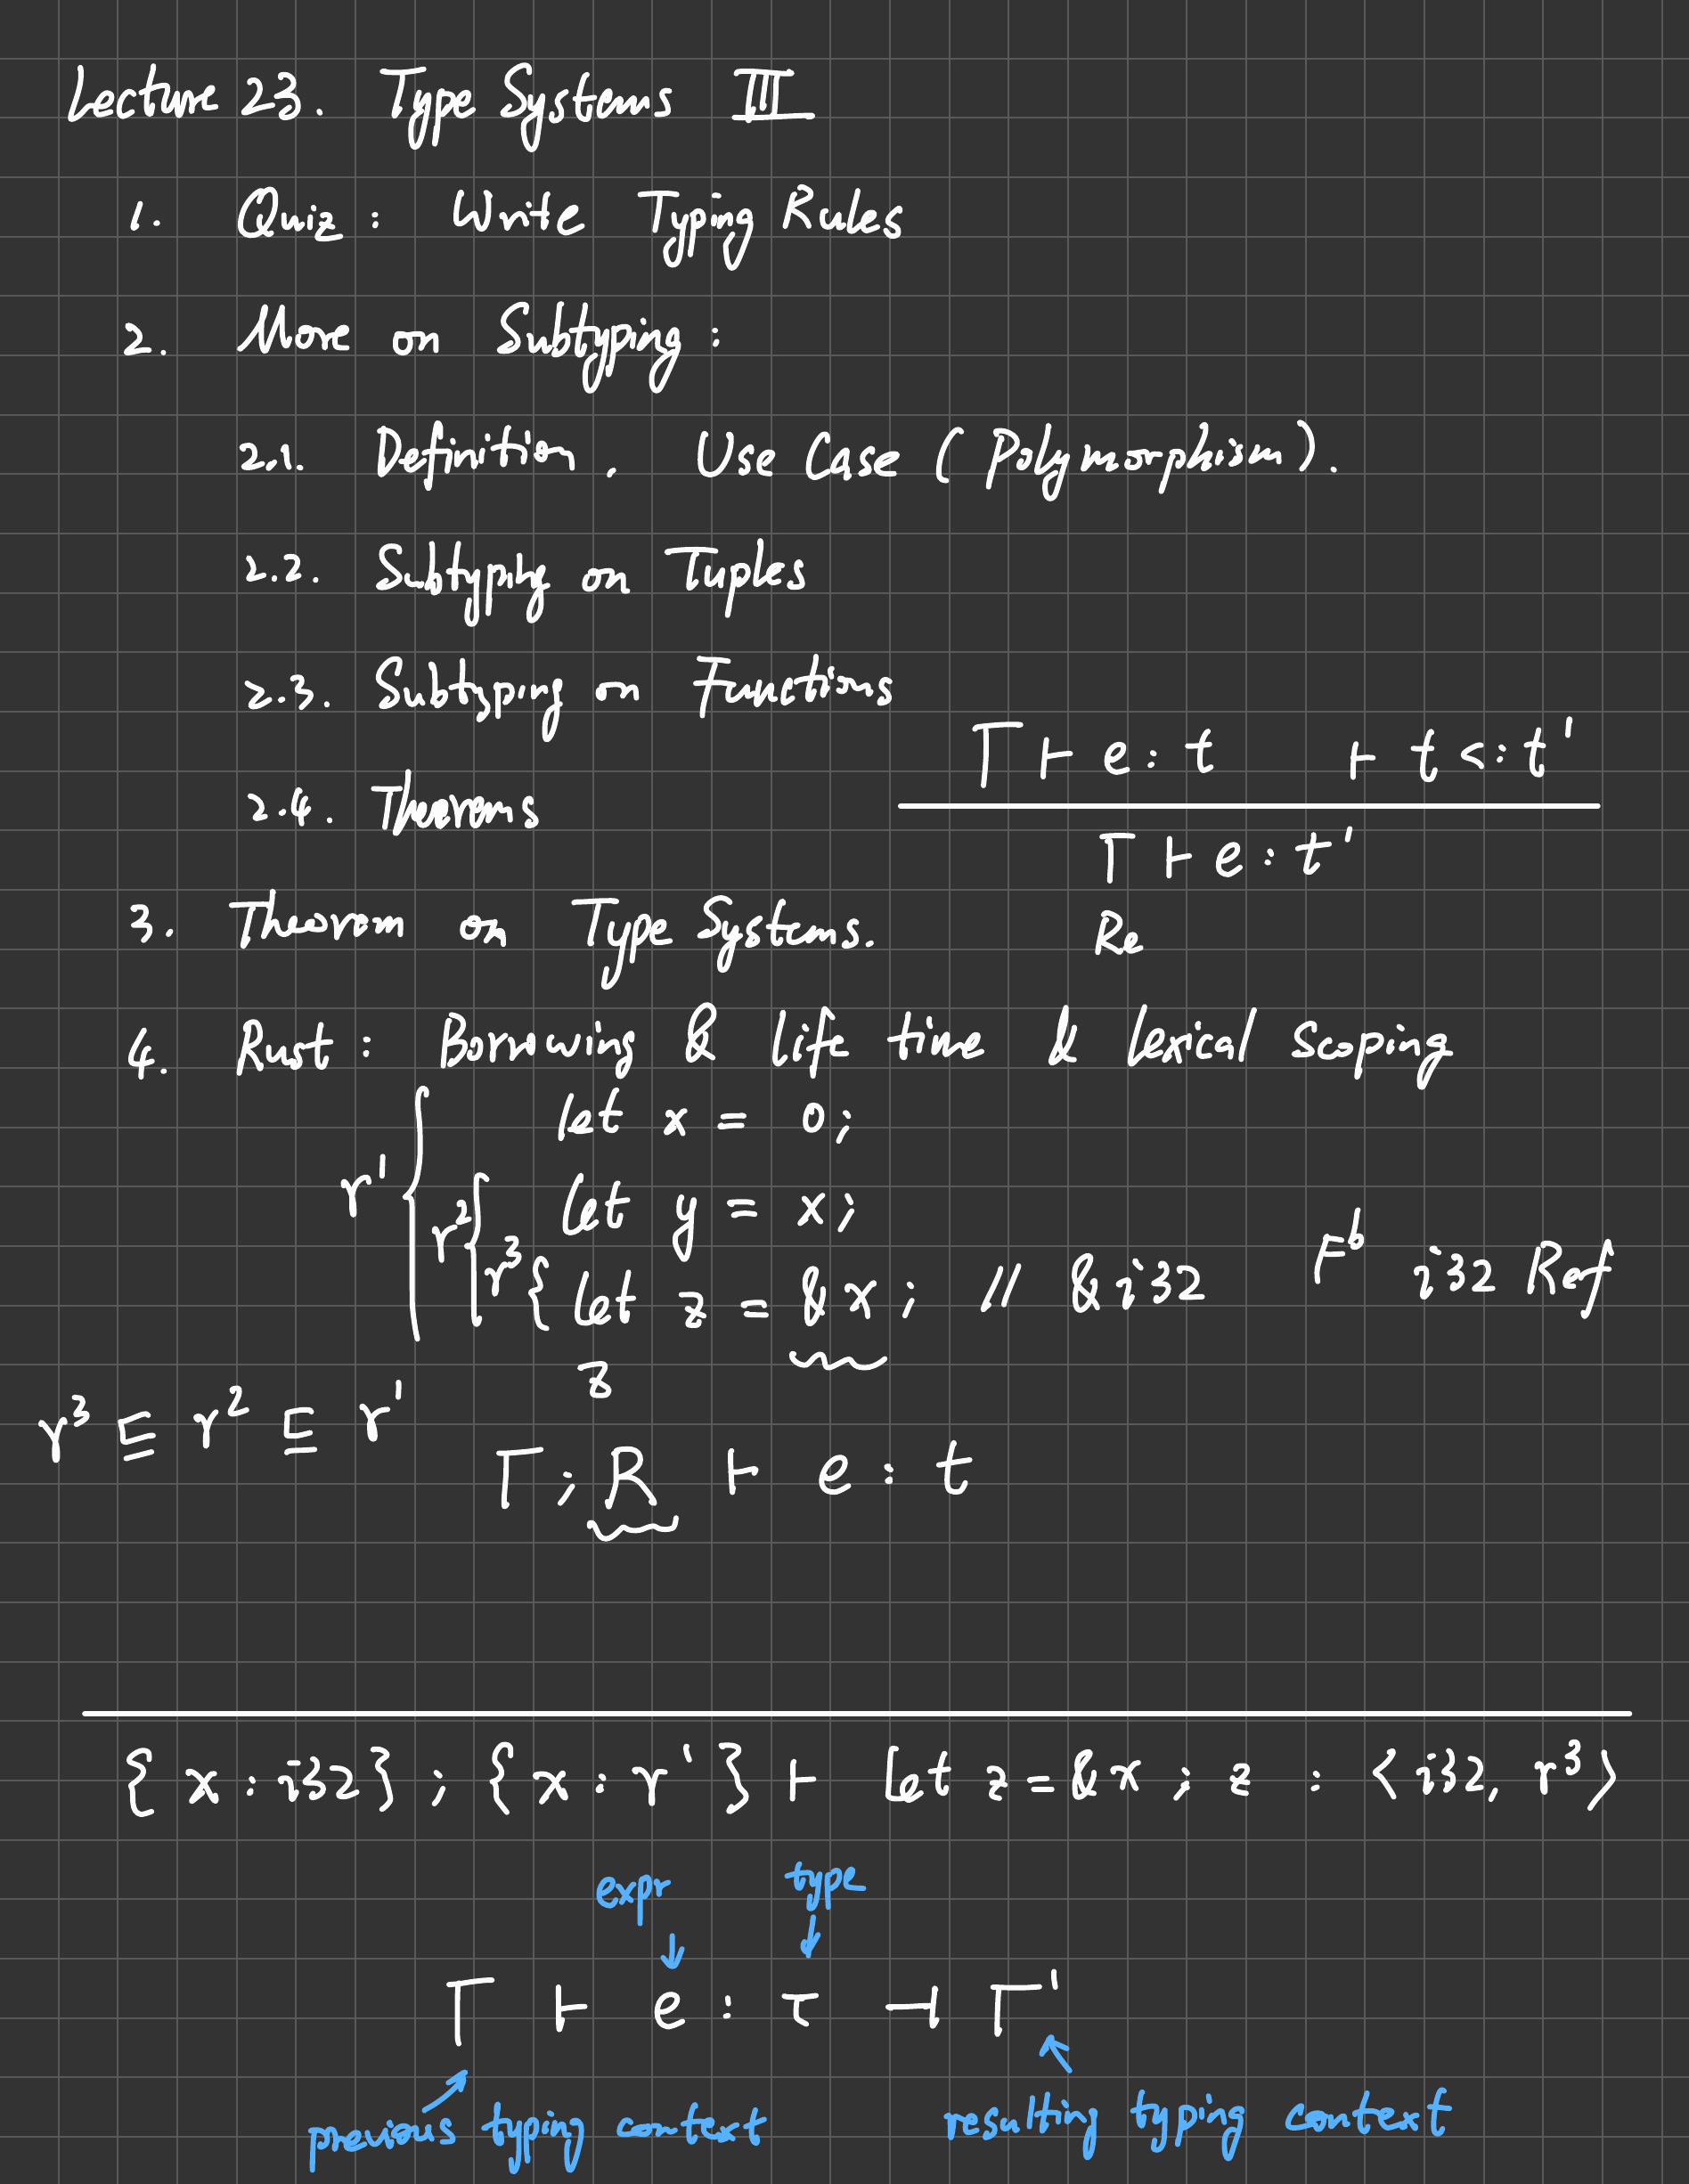 Lecture 23. Type Systems III
1. Quiz: Write Typing Rules
2. More on Subtyping:
2.1. Definition. Use Case (Polymorphism).
2.2. Subtyping on Tuples
2.3. Subtyping on Functions
Γ ⊢ e : t ⊢ t <: t'
2.4. Theorems
Γ ⊢ e : t'
3. Theorem on Type Systems.
Re
4. Rust: Borrowing & life time & lexical Scoping
let x = 0;
r¹ { r² { let y = x;
r³ { let z = &x; // &i32 ⊢ᵇ i32 Ref
z
r³ ⊑ r² ⊑ r¹
Γ; R ⊢ e : t
{x : i32}; {x : r'} ⊢ let z = &x; z : ⟨i32, r³⟩
expr type
Γ ⊢ e : τ ⊣ Γ'
previous typing context resulting typing context